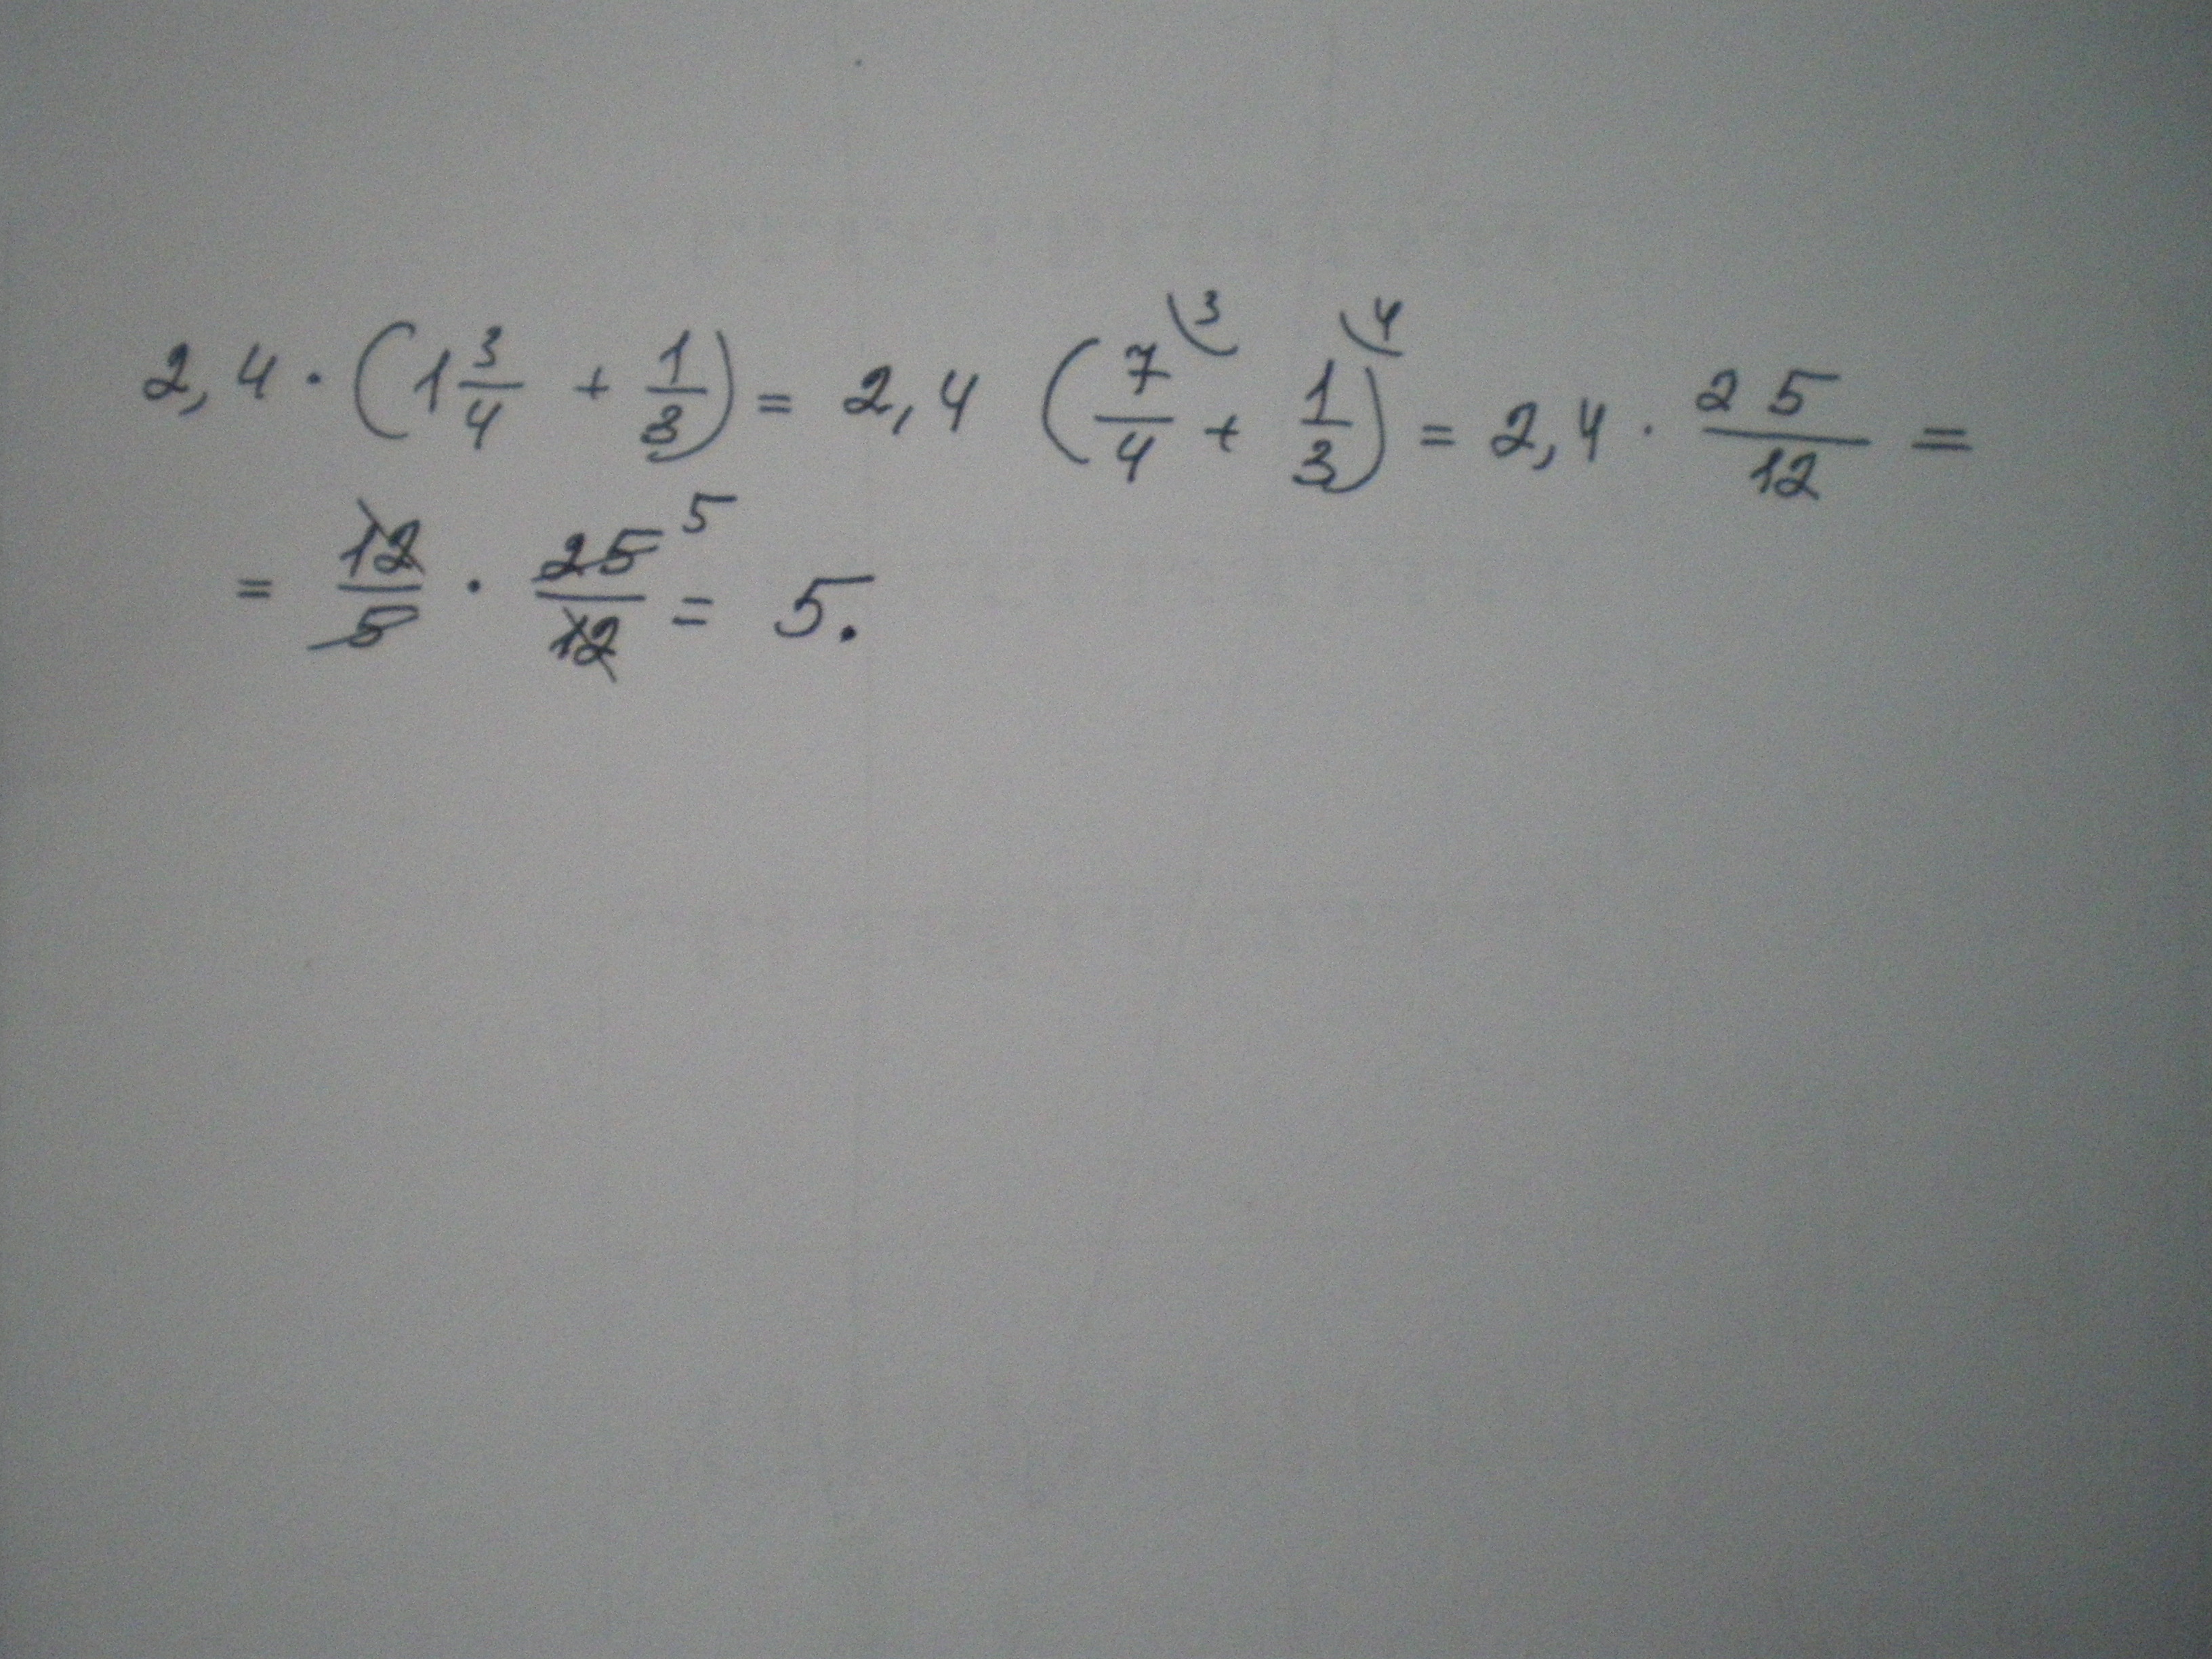 2,4 · (1 3/4 + 1/3) = 2,4 (7/4 ⁽³ + 1/3 ⁽⁴) = 2,4 · 25/12 =
= 12/5 · 25/12 ⁵ = 5.